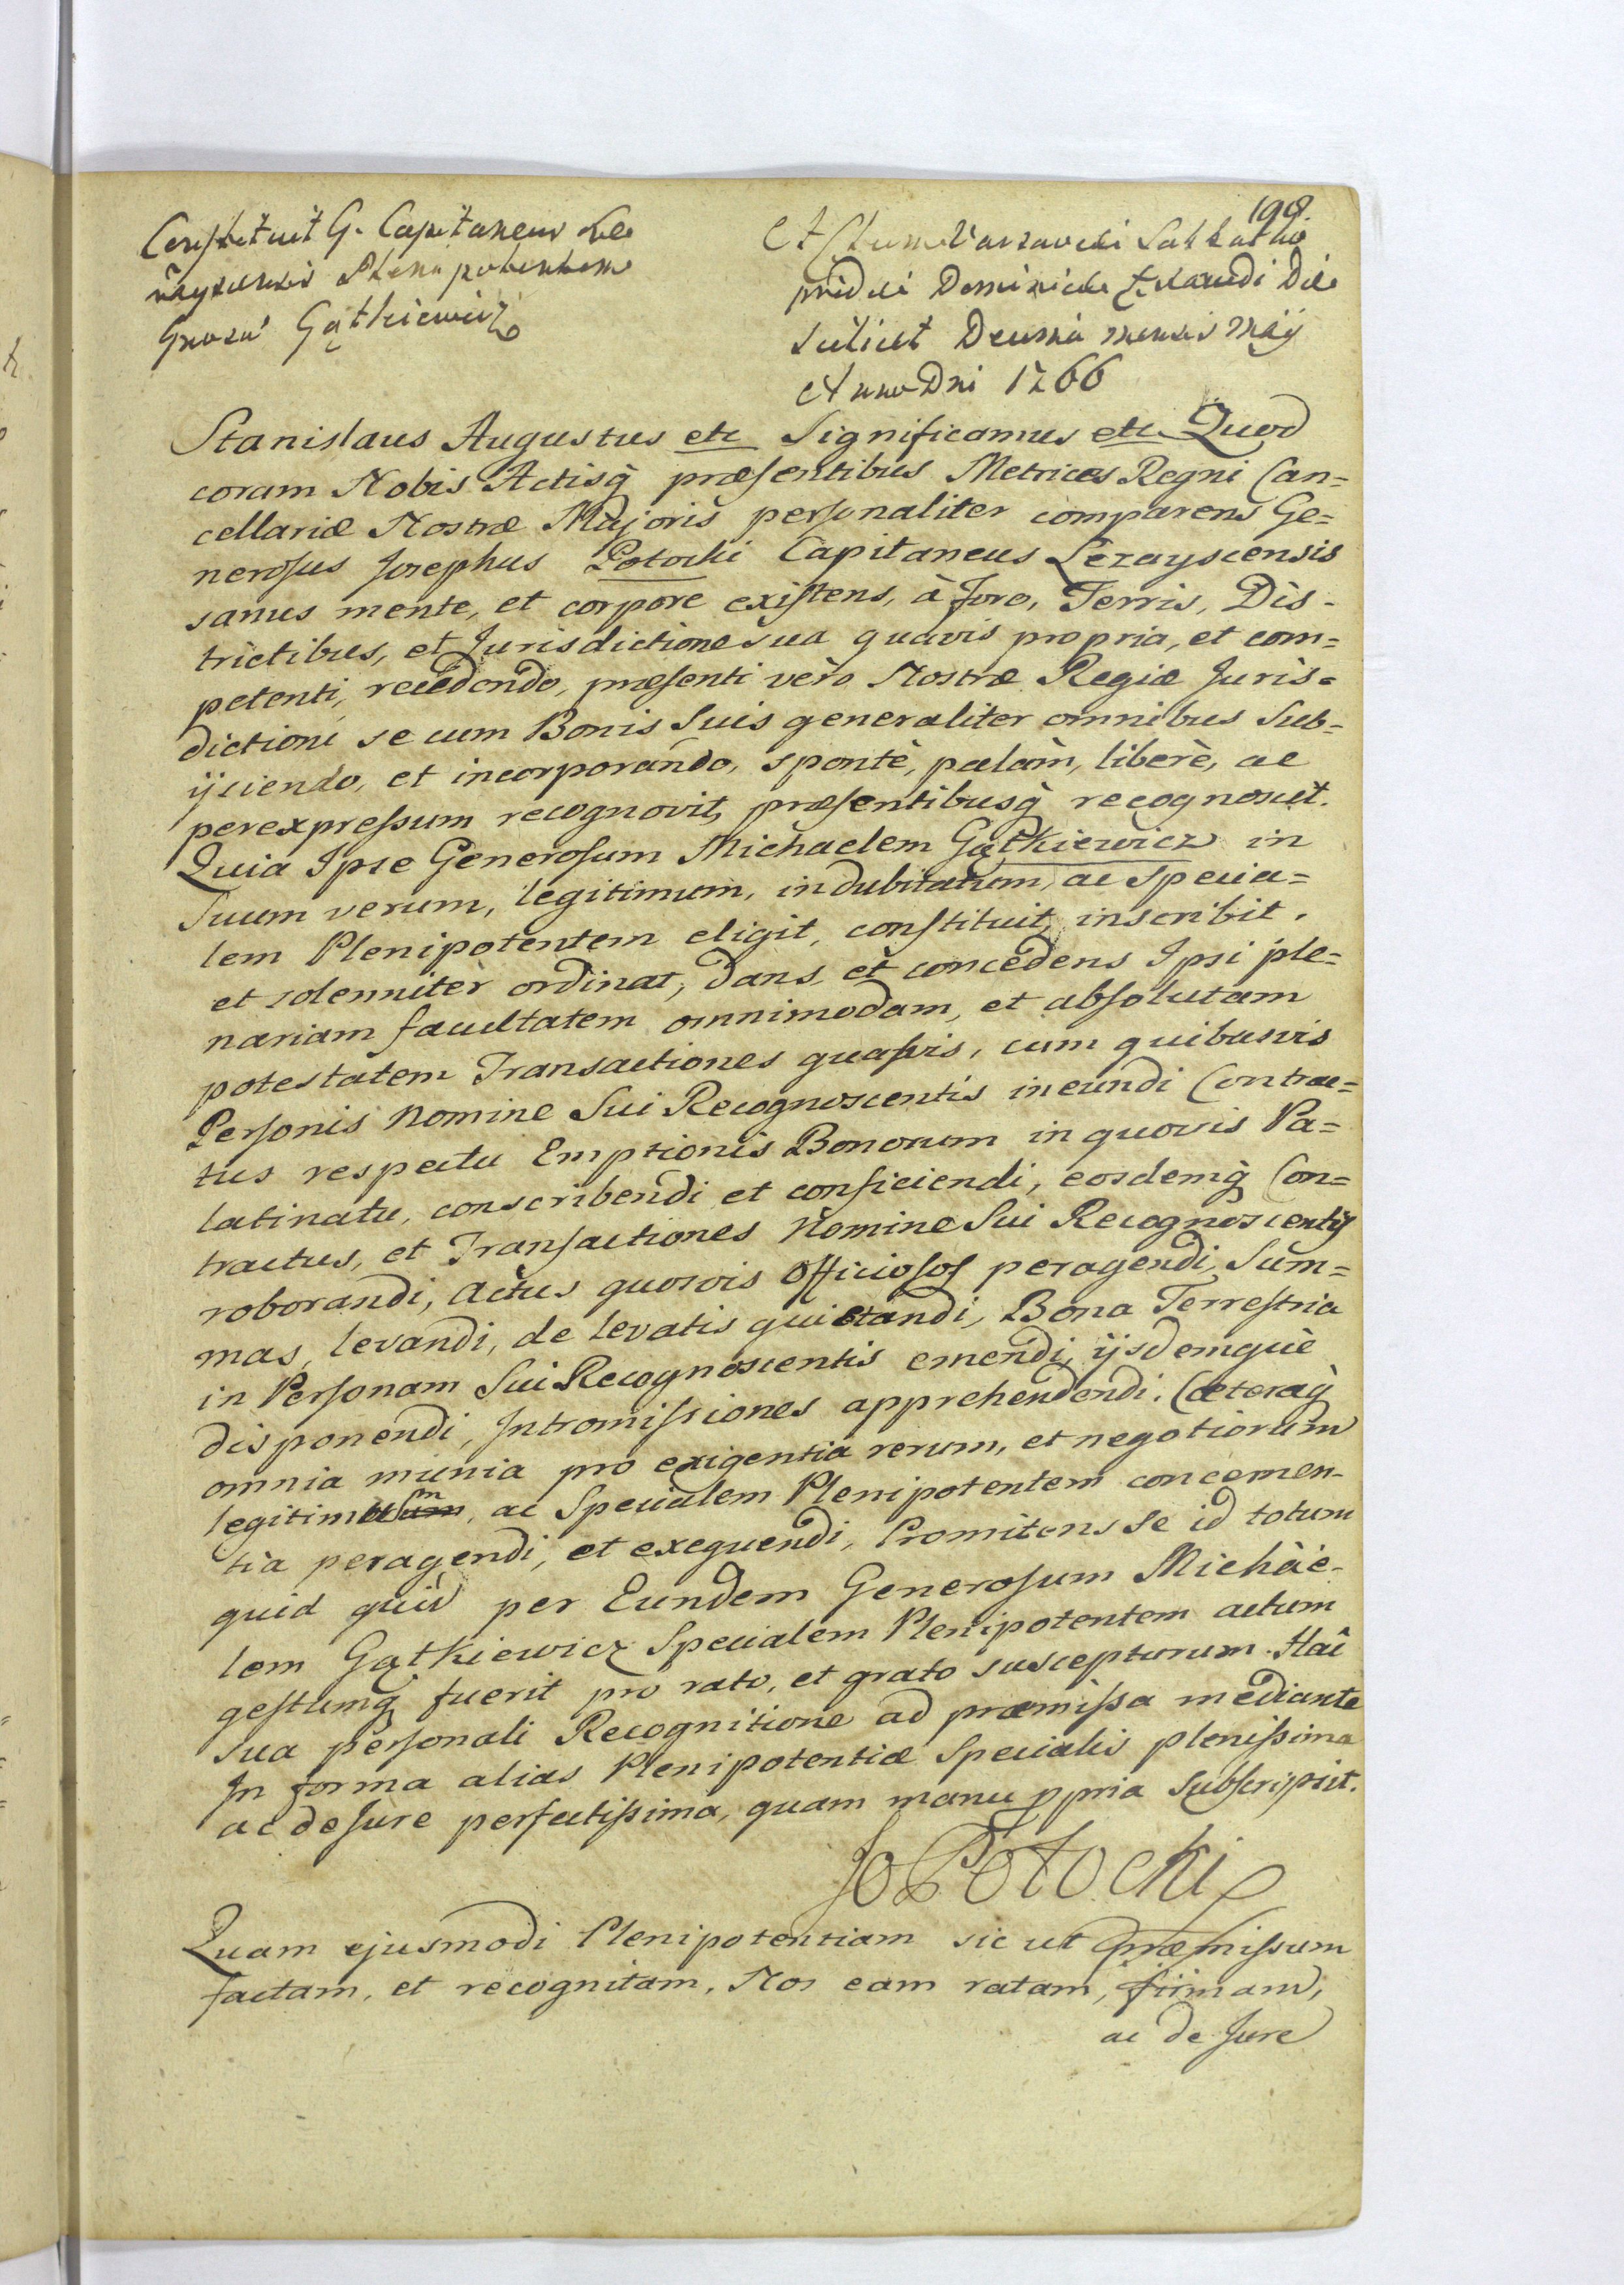 198.
Constituit G. Capitaneus Le
zayscensis Plenipotentem
Gnosu' Gątkiewicz
Actum Varsaviae Sabbatho
pridie Dominicae Exaudi Die
scilicet Decima mensis Maij
Anno Dni 1766
Stanislaus Augustus etc Significamus etc Quod
coram Nobis Actisq̀ præsentibus Metrices Regni Can=
cellariæ Nostræ Majoris personaliter comparens Ge=
nerosus Josephus Potocki Capitaneus Lezayscensis
sanus mente, et corpore existens, à Foro, Terris, Dis-
trictibus, et Jurisdictione sua quavis propria, et com=
petenti, recedendo, præsenti vèro Nostræ Regiæ Juris=
dictioni se cum Bonis Suis generaliter omnibus Sub=
ijciendo, et incorporando, sponte, palàm, liberè, ac
per expressum recognovit, præsentibusq̀ recognoscit.
Quia Ipse Generosum Michaelem Gątkiewicz in
Suum verum, legitimum, indubitatum, ac specia=
lem Plenipotentem eligit, constituit, inscribit,
et solenniter ordinat, dans, et concedens Ipsi ple=
nariam facultatem omnimodam, et absolutam
potestatem Transactiones quasvis, cum quibusvis
Personis Nomine Sui Recognoscentis ineundi Contrac=
tus respectu Emptionis Bonorum in quovis Pa=
latinatu, conscribendi et conficiendi, eosdemq̀ Con=
tractus, et Transactiones Nomine Sui Recognoscentis
roborandi, Actus quosvis Officiosos peragendi, Sum=
mas, levandi, de levatis quietandi, Bona Terrestria
in Personam Sui Recognoscentis emendi, ijsdemquè
disponendi, Intromissiones apprehendendi. Cæteraq̀
omnia munia pro exigentia rerum, et negotiorum
legitimum, ac Specialem Plenipotentem concernen-
tia peragendi, et exequendi, Promitens se id totum
quid quid per Eundem Generosum Michàè-
lem Gątkiewicz Specialem Plenipotentem actum
gestumq̀ fuerit pro rato, et grato suscepturum. Hac
sua personali Recognitione ad præmissa mediante
In forma alias Plenipotentiæ Specialis plenissima
ac de Jure perfectissima, quam manu ppria Subscripsit.
Jo Potocki
Quam ejusmodi Plenipotentiam sic ut præmissum
factam, et recognitam, Nos eam ratam, firmam,
ac de Jure